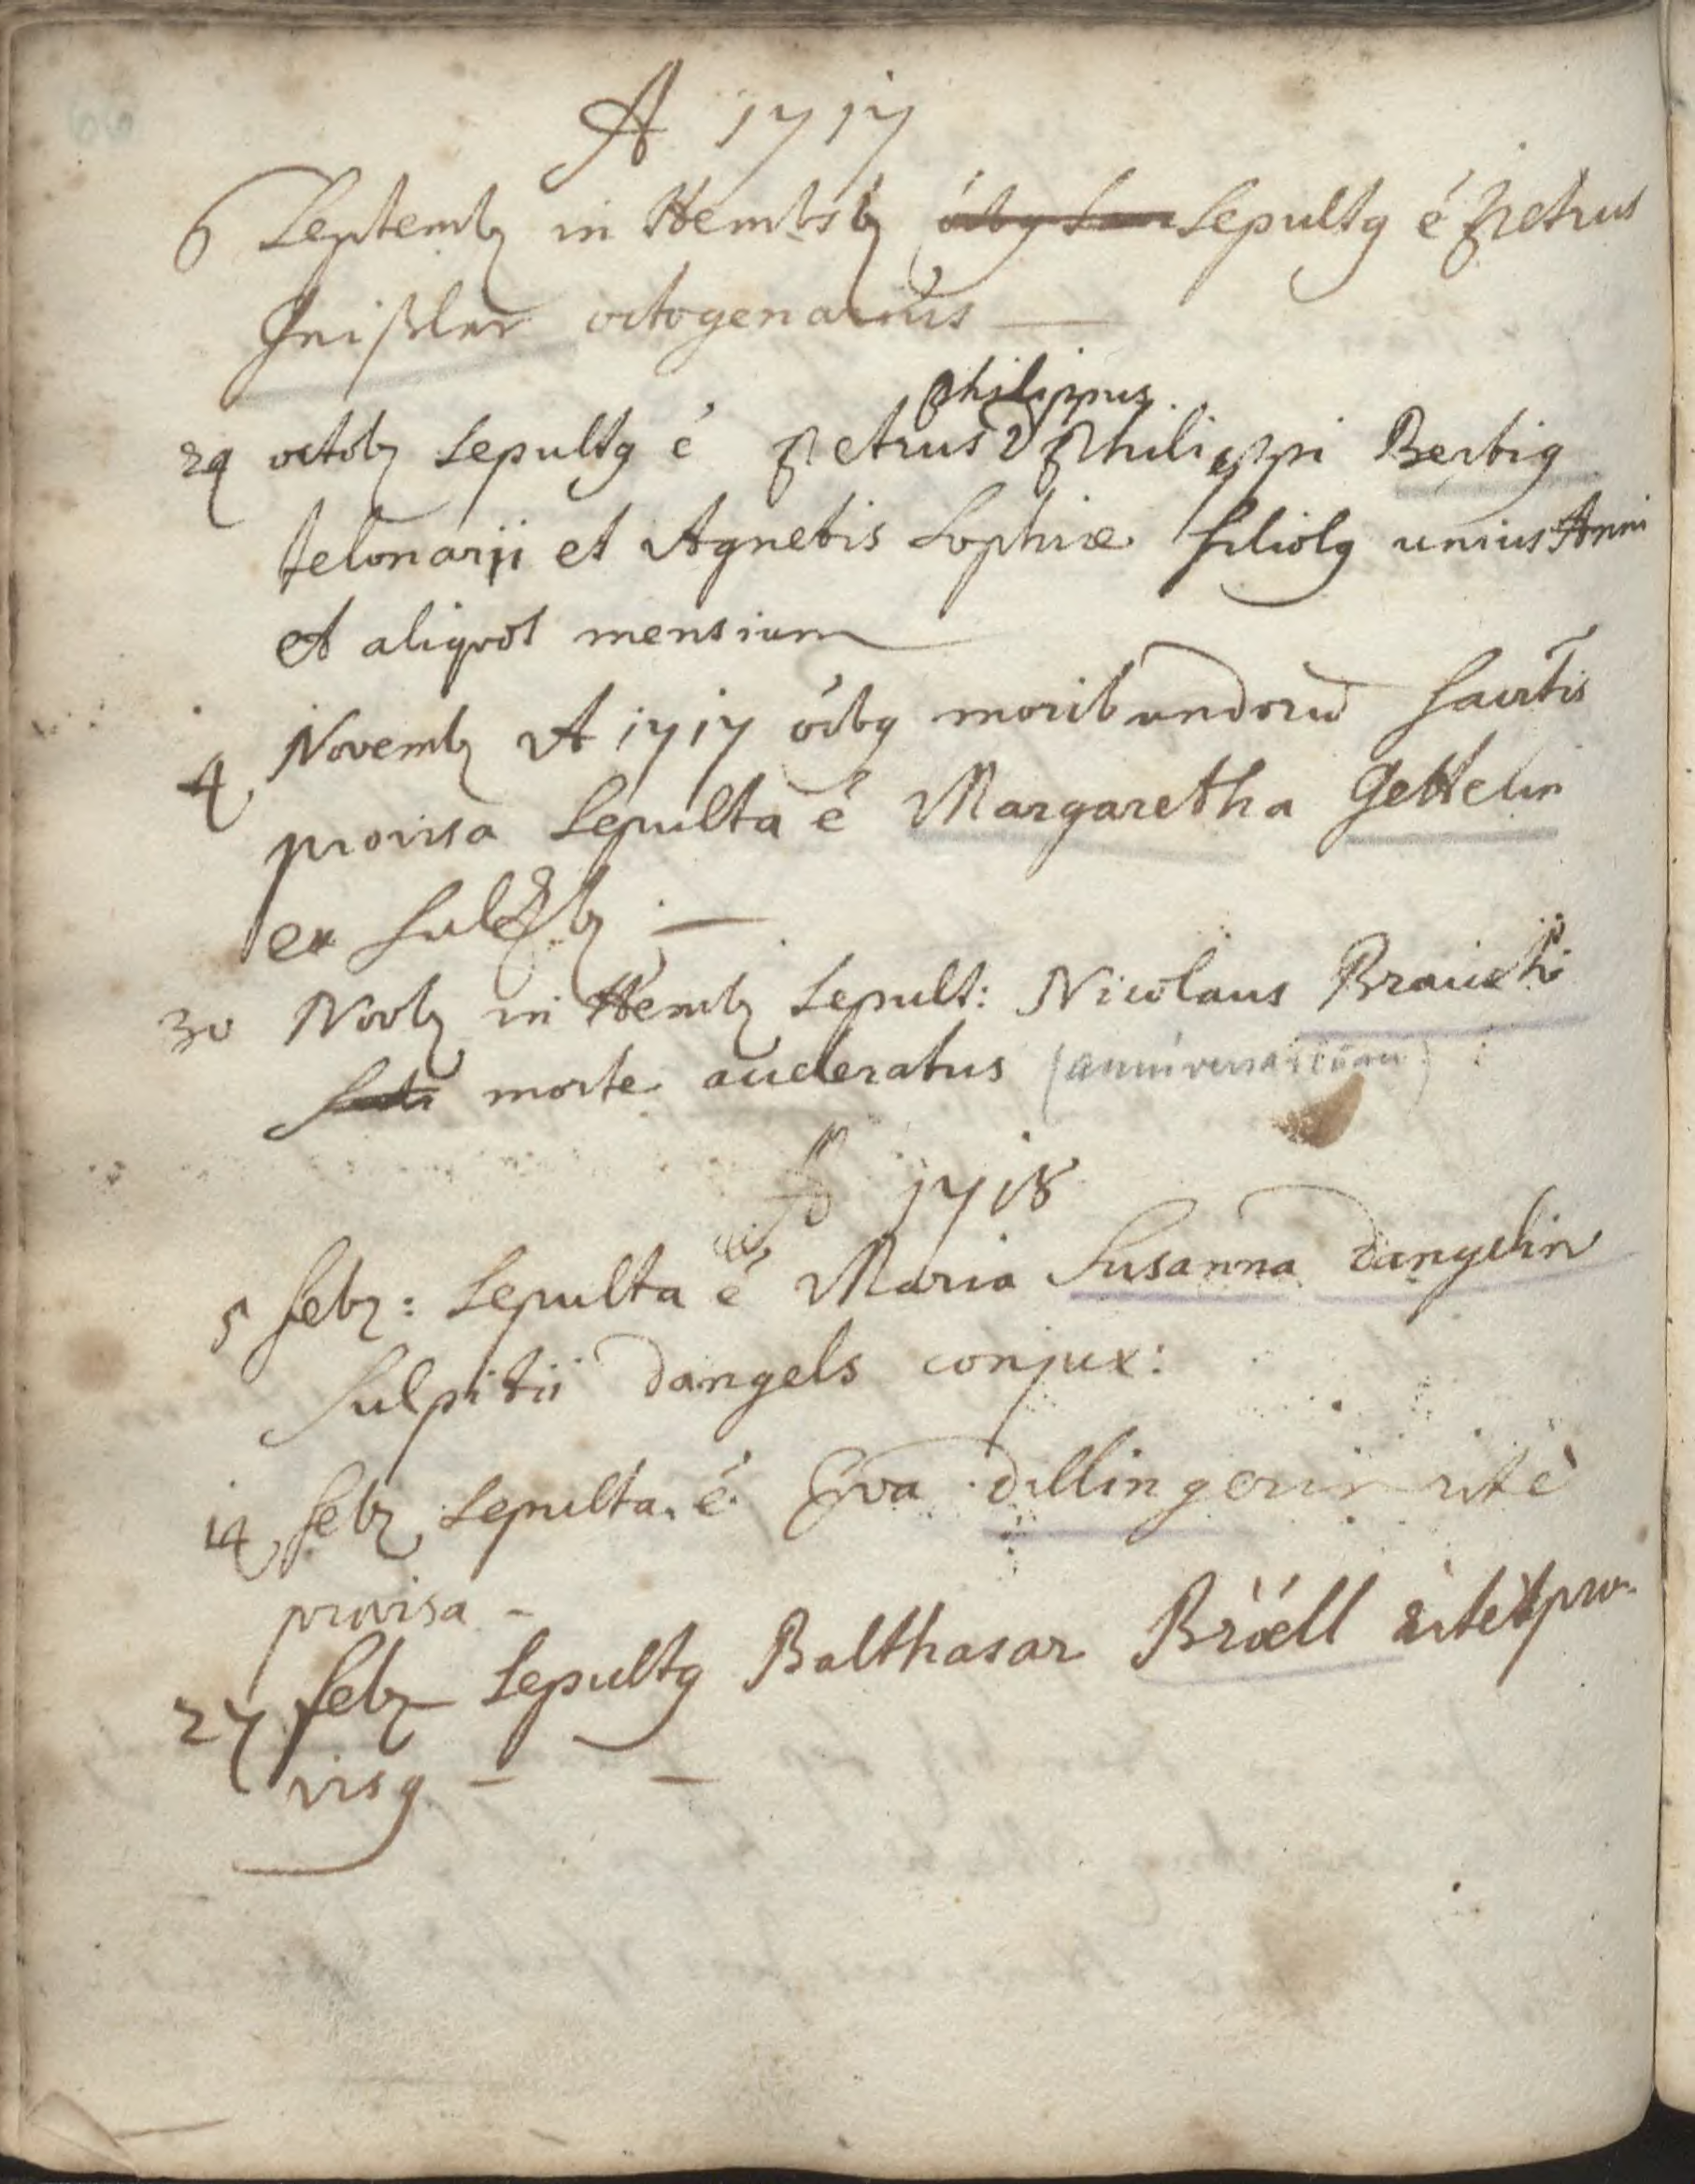 A 1717
6 Septemb in Hembsb sepultg é Petrus
Geißler octogenarius
Philippus
29 octob sepultg é Petrus Philippi Berbig
telonarii et Agnetis Sophiæ filiolg unius Anni
et aliquot mensium
4 Novemb A 1717 oibg moribundorū sacrtis
provisa sepulta é Margaretha Gettelin
ex Sulzb
30 Novb in Hemb sepult: Nicolaus
morte acceleratus (anniversarium)
A 1718
5 febr: sepulta é Maria Susanna dangelin
Sulpitii dangels conjux:
14 febr sepulta é Eva dillingerin ritè
provisa -
27 febr sepultg Balthasar Bröell ritè pro-
visg - -